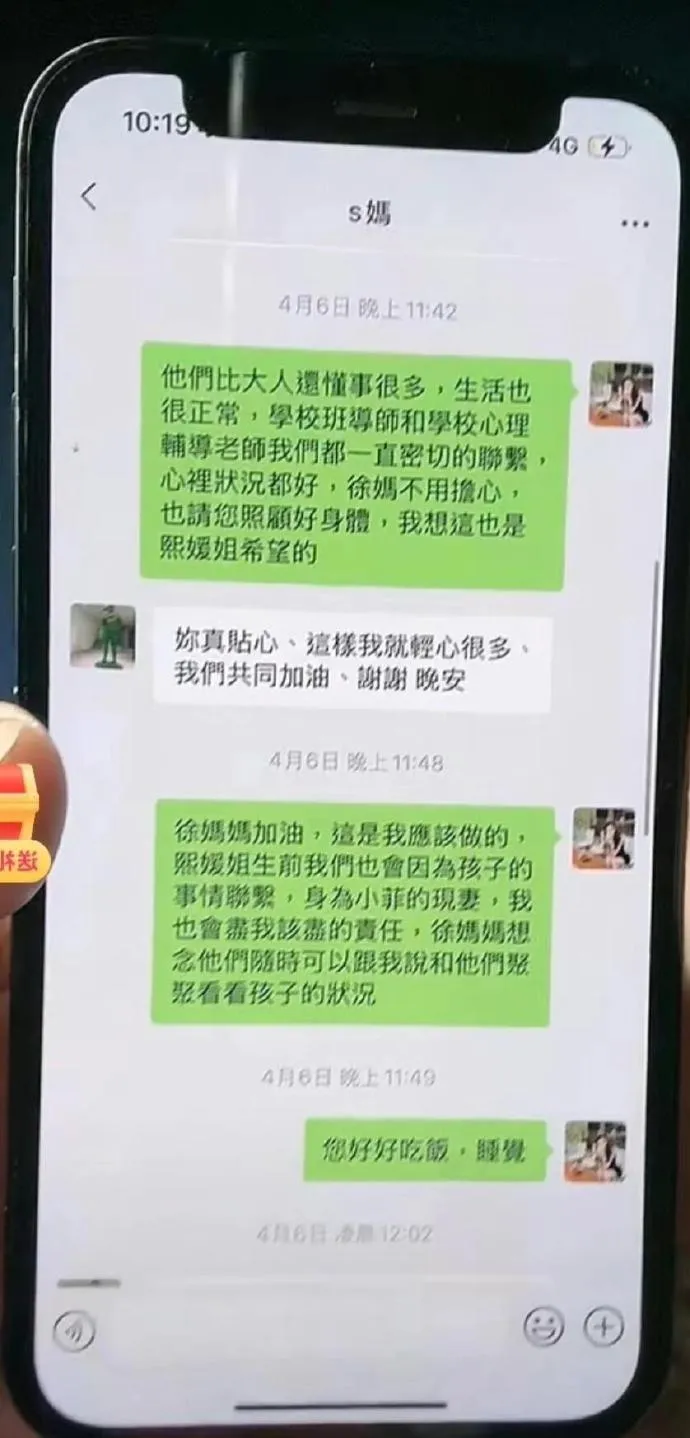 10:19
4G
s媽
4月6日 晚上 11:42
他們比大人還懂事很多，生活也
很正常，學校班導師和學校心理
輔導老師我們都一直密切的聯繫，
心裡狀況都好，徐媽不用擔心，
也請您照顧好身體，我想這也是
熙媛姐希望的
妳真貼心、這樣我就輕心很多、
我們共同加油、謝謝 晚安
4月6日 晚上 11:48
徐媽媽加油，這是我應該做的，
熙媛姐生前我們也會因為孩子的
事情聯繫，身為小菲的現妻，我
也會盡我該盡的責任，徐媽媽想
念他們隨時可以跟我說和他們聚
聚看看孩子的狀況
4月6日 晚上 11:49
您好好吃飯，睡覺
4月6日 凌晨 12:02
送礼